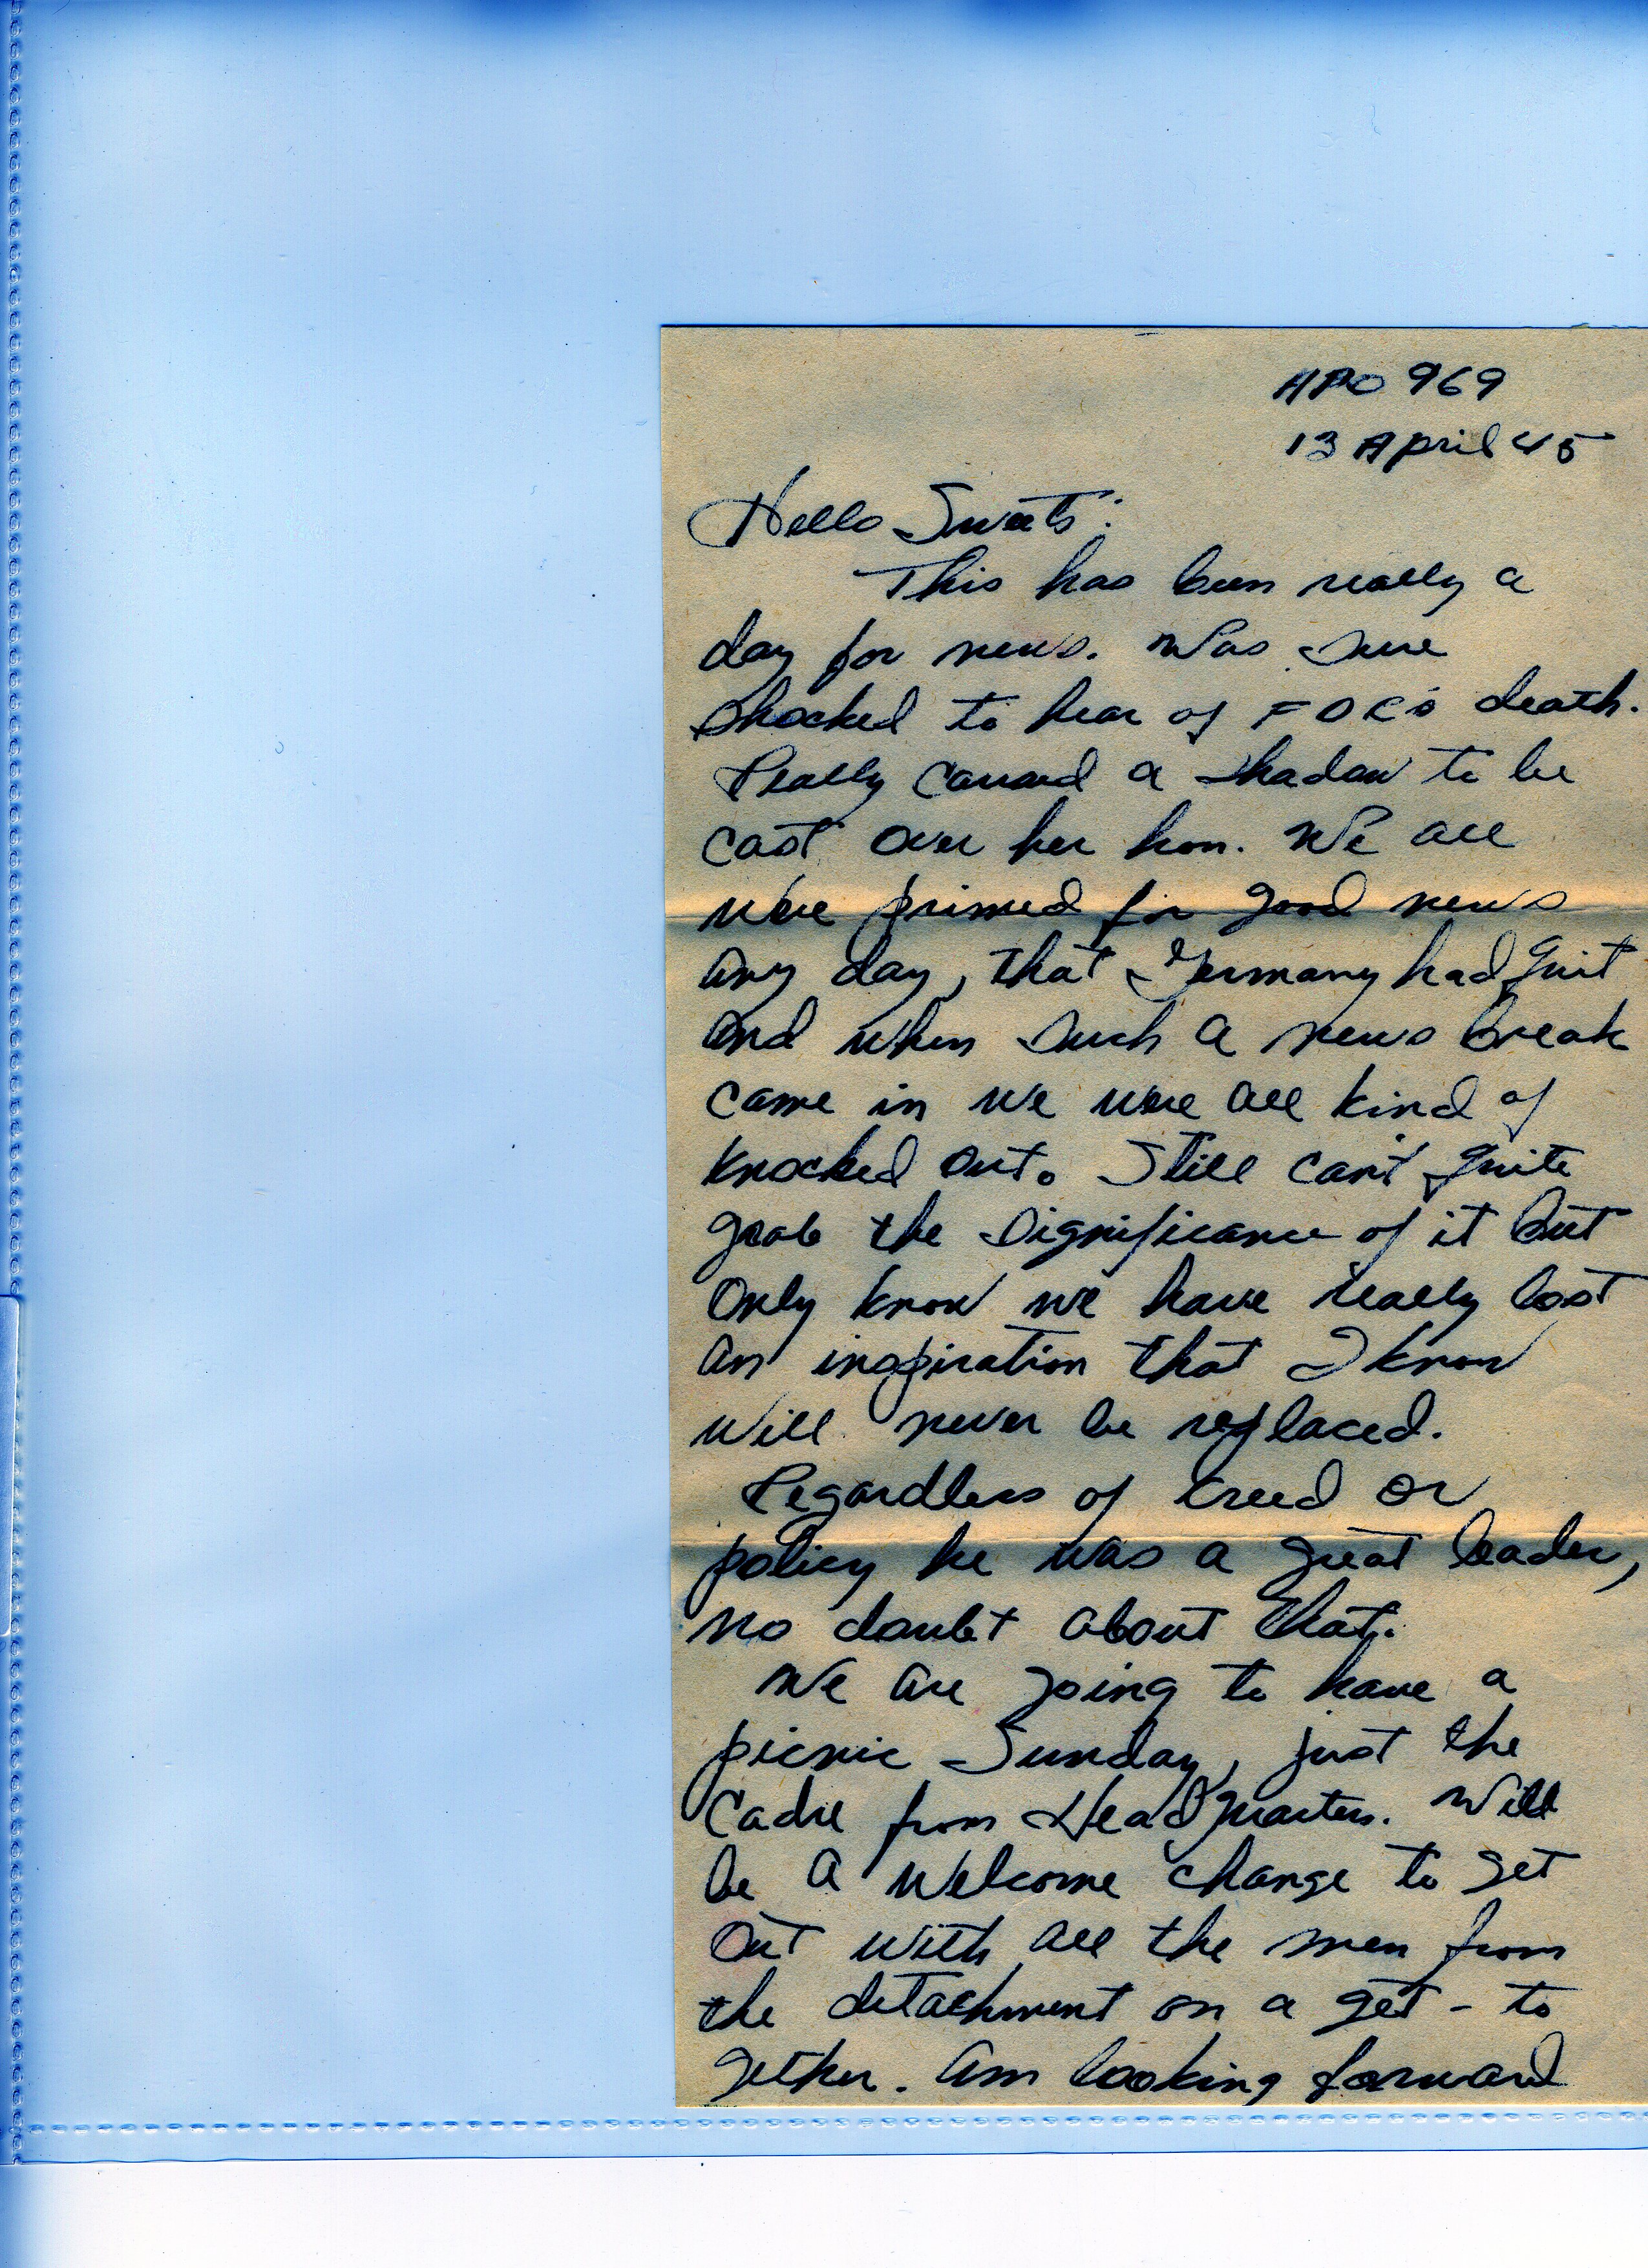 APO 969
13 April 45
Hello Sweets:
This has been really a
day for news. Was sure
shocked to hear of FDR's death.
Really caused a shadow to be
cast over her hon. We all
were primed for good news
any day, that Germany had quit
and when such a news break
came in we were all kind of
knocked out. Still can't quite
grab the significance of it but
only know we have really lost
an inspiration that I know
will never be replaced.
Regardless of creed or
policy he was a great leader,
no doubt about that.
We are going to have a
picnic Sunday, just the
Cadre from HeadQuarters. Will
be a welcome change to get
out with all the men from
the detachment on a get-to
gether. Am looking forward